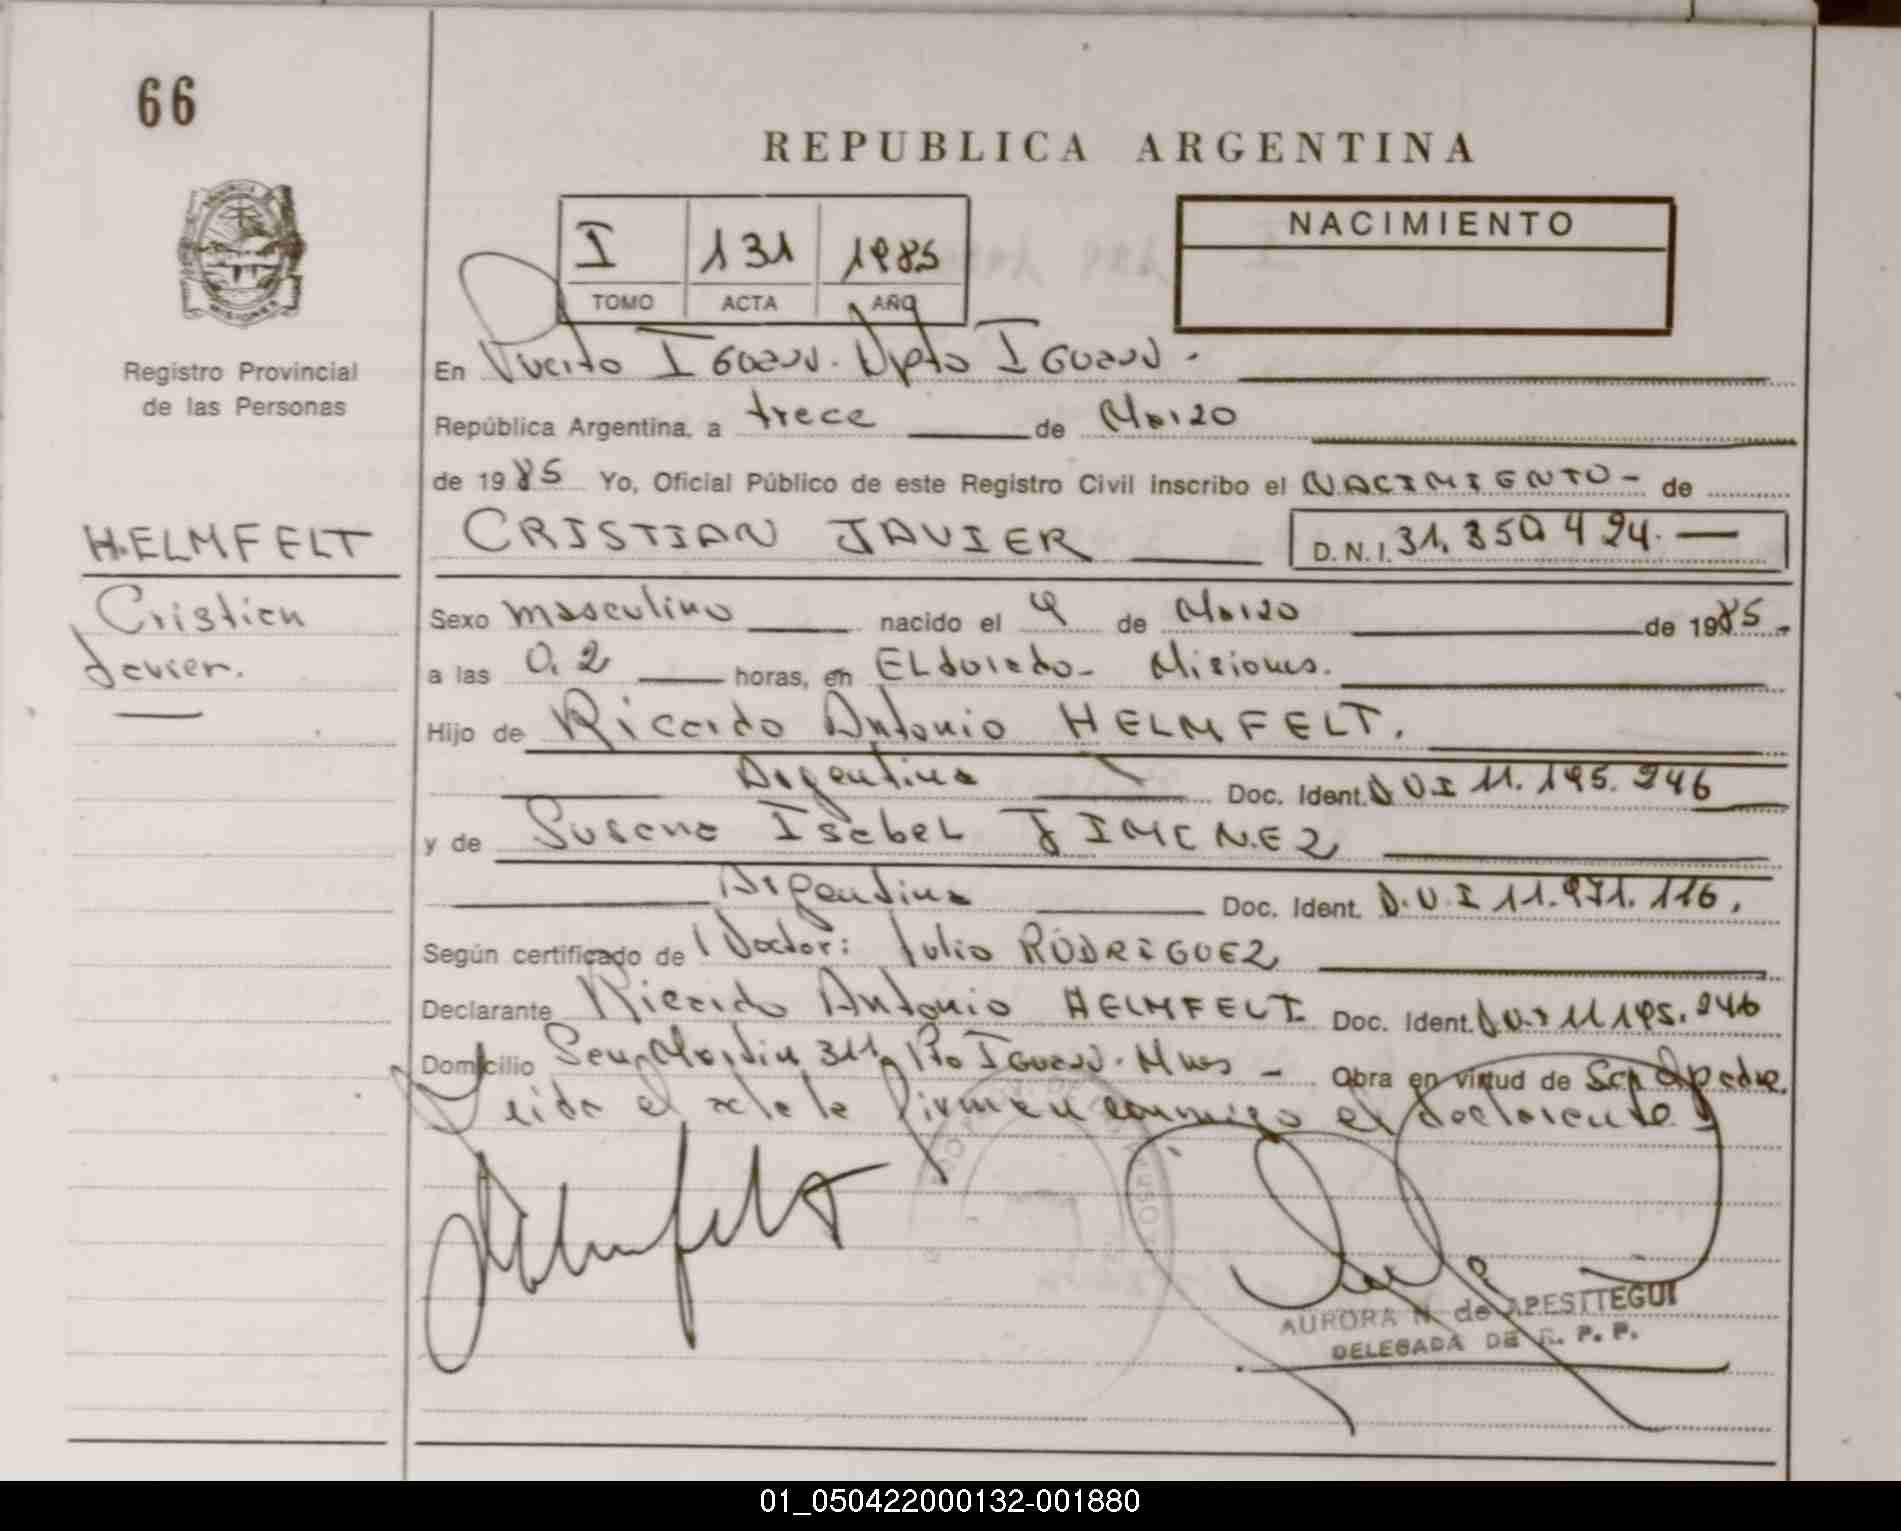 66
REPUBLICA ARGENTINA
I 131 1985
TOMO ACTA AÑO
NACIMIENTO
PROVINCIA DE
MISIONES
Registro Provincial
de las Personas
En Puerto Iguazú. Dpto Iguazú.
República Argentina, a trece de Marzo
de 1985 Yo, Oficial Público de este Registro Civil inscribo el NACIMIENTO - de
HELMFELT
Cristian
Javier.
CRISTIAN JAVIER
D.N.I. 31.350.424.
Sexo masculino nacido el 4 de Marzo de 1985
a las 0.2 horas, en ELdorado - Misiones.
Hijo de Ricardo Antonio HELMFELT.
Argentina Doc. Ident. DNI 11.195.246
y de Susana Isabel JIMENEZ
Argentina Doc. Ident. D.N.I 11.971.116.
Según certificado de Doctor: Julio RODRIGUEZ
Declarante Ricardo Antonio HELMFELT Doc. Ident. DNI 11 195.246
Domicilio San Martin 311 Pto Iguazú. Mnes - Obra en virtud de Ser el padre.
Leida el acta la firman conmigo el declarante
Helmfelt
AURORA N de APESTTEGUI
DELEGADA DE R. P. P.
01_050422000132-001880